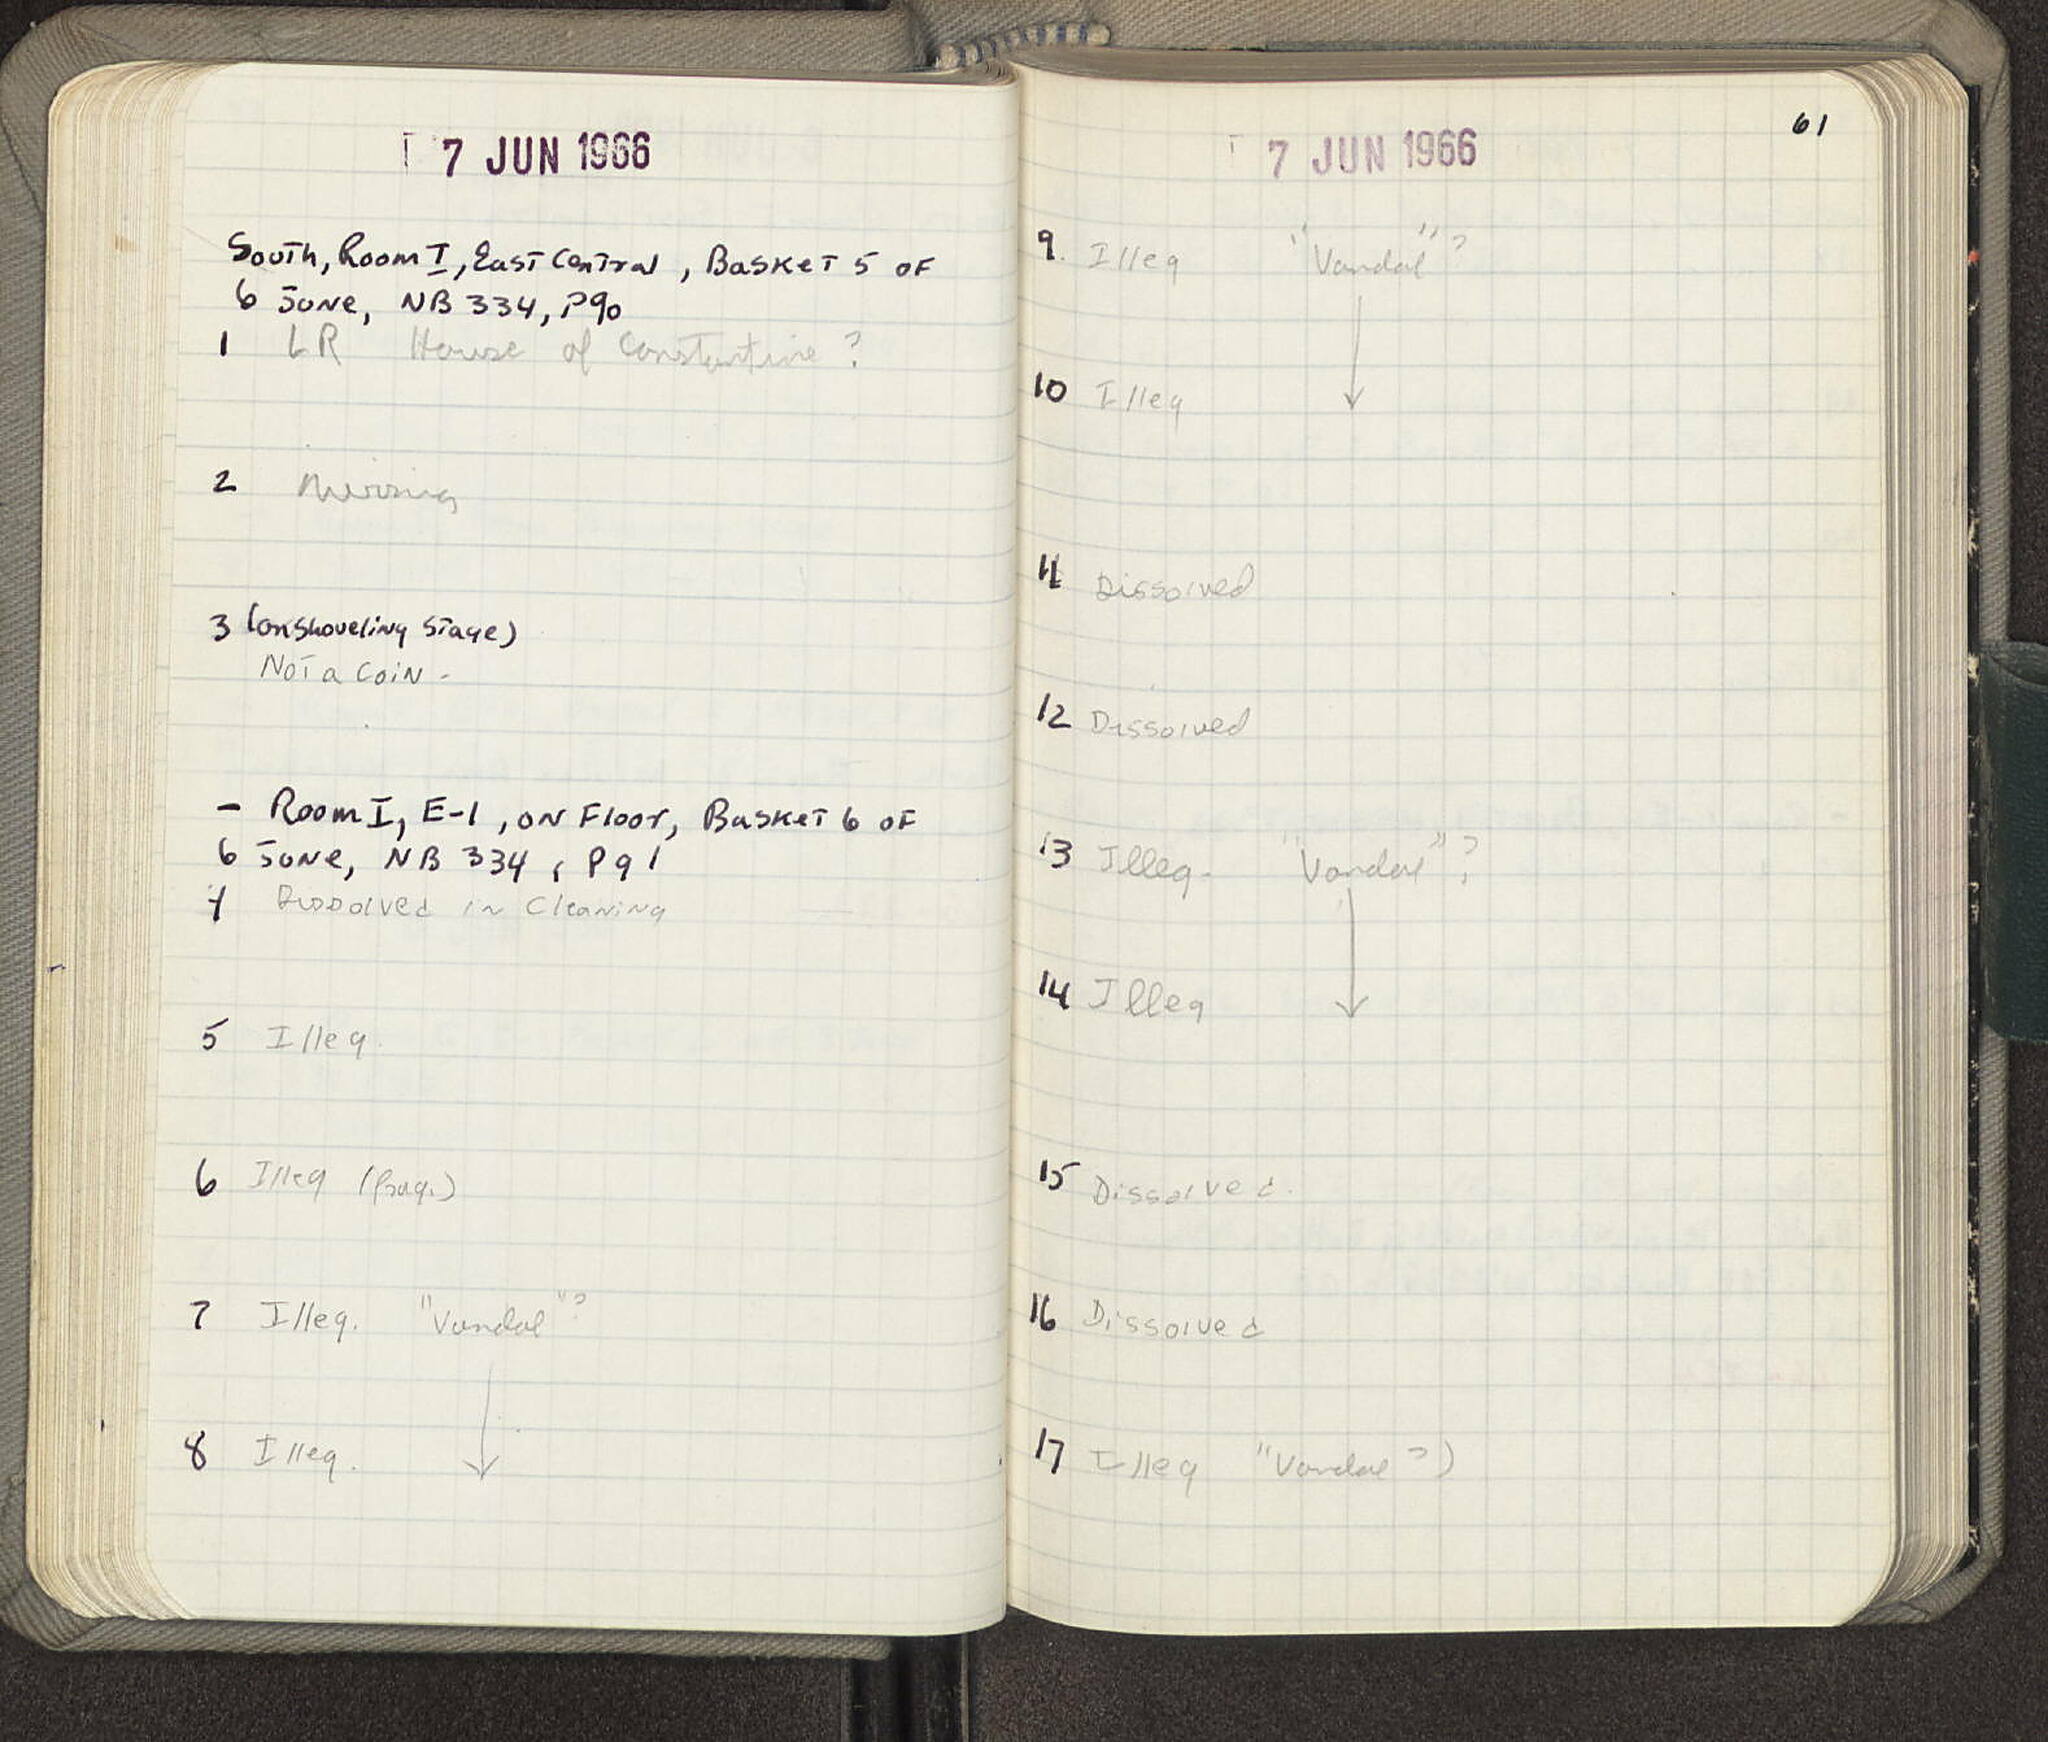 7 JUN 1966
South, Room I, East Central, Basket 5 of
6 June, NB 334, P90
1 LR House of Constantine?
2 Missing
3 (on shoveling stage)
Not a coin -
- Room I, E-1, on Floor, Basket 6 of
6 June, NB 334, P91
4 Dissolved in Cleaning
5 Illeg.
6 Illeg (frag.)
7 Illeg. "Vandal"?
8 Illeg.
61
7 JUN 1966
9. Illeg "Vandal"?
10 Illeg
11 Dissolved
12 Dissolved
13 Illeg. "Vandal"?
14 Illeg
15 Dissolved.
16 Dissolved
17 Illeg "Vandal ?)